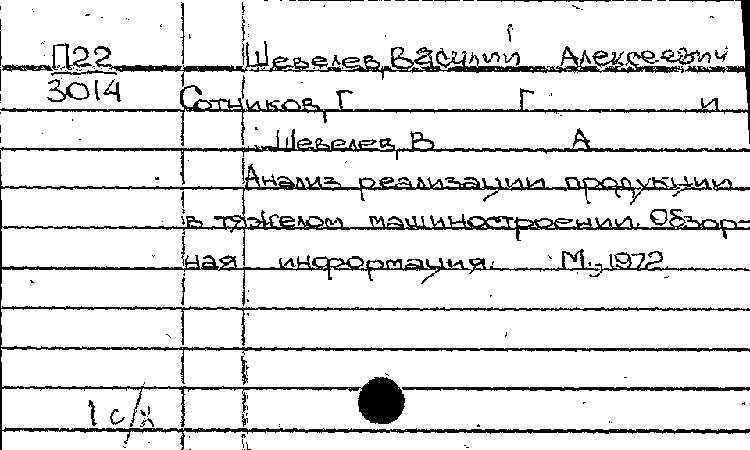 П22 Шевелев, Василий Алексеевич
3014 Сотников, Г Г и
Шевелев, В А
Анализ реализации продукции
в тяжелом машиностроении. Обзор-
ная информация. М., 1972
1 с/х